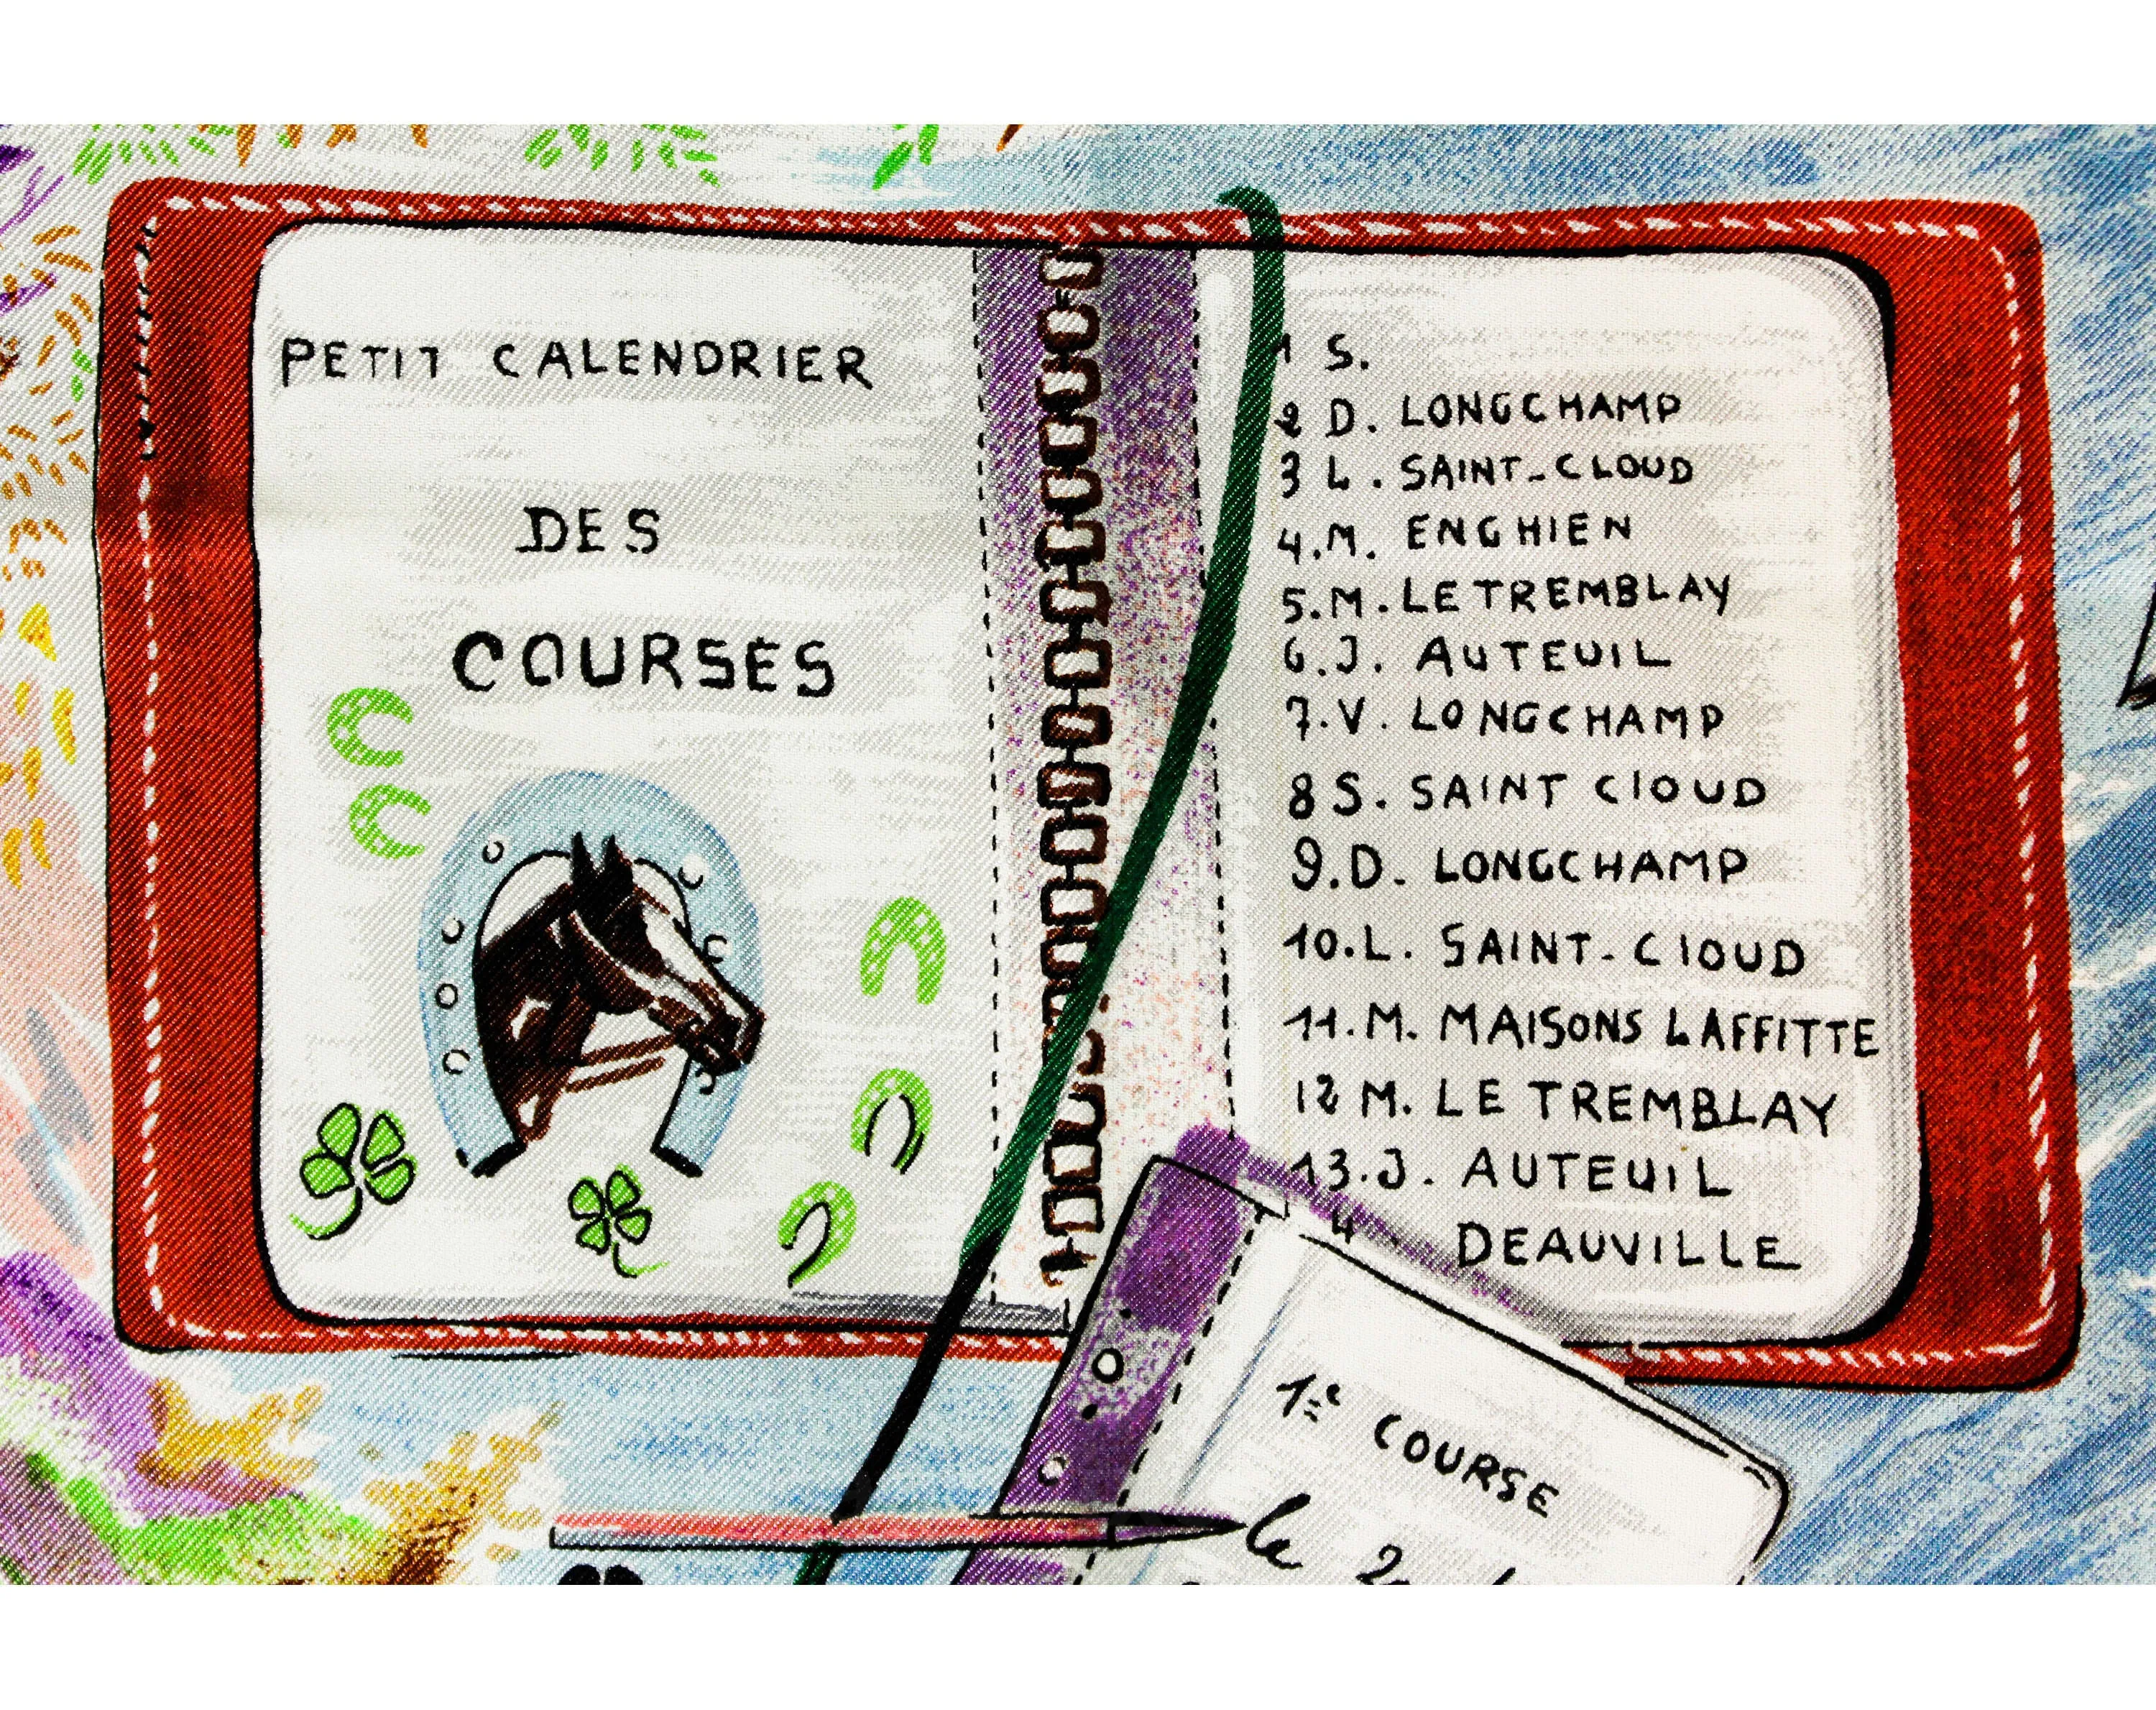 PETIT CALENDRIER
DES
COURSES
1 S.
2 D. LONGCHAMP
3 L. SAINT-CLOUD
4.M. ENGHIEN
5.M. LE TREMBLAY
6.J. AUTEUIL
7.V. LONGCHAMP
8 S. SAINT CLOUD
9.D. LONGCHAMP
10.L. SAINT-CLOUD
11.M. MAISONS LAFFITTE
12 M. LE TREMBLAY
13.J. AUTEUIL
4 DEAUVILLE
1re COURSE
le